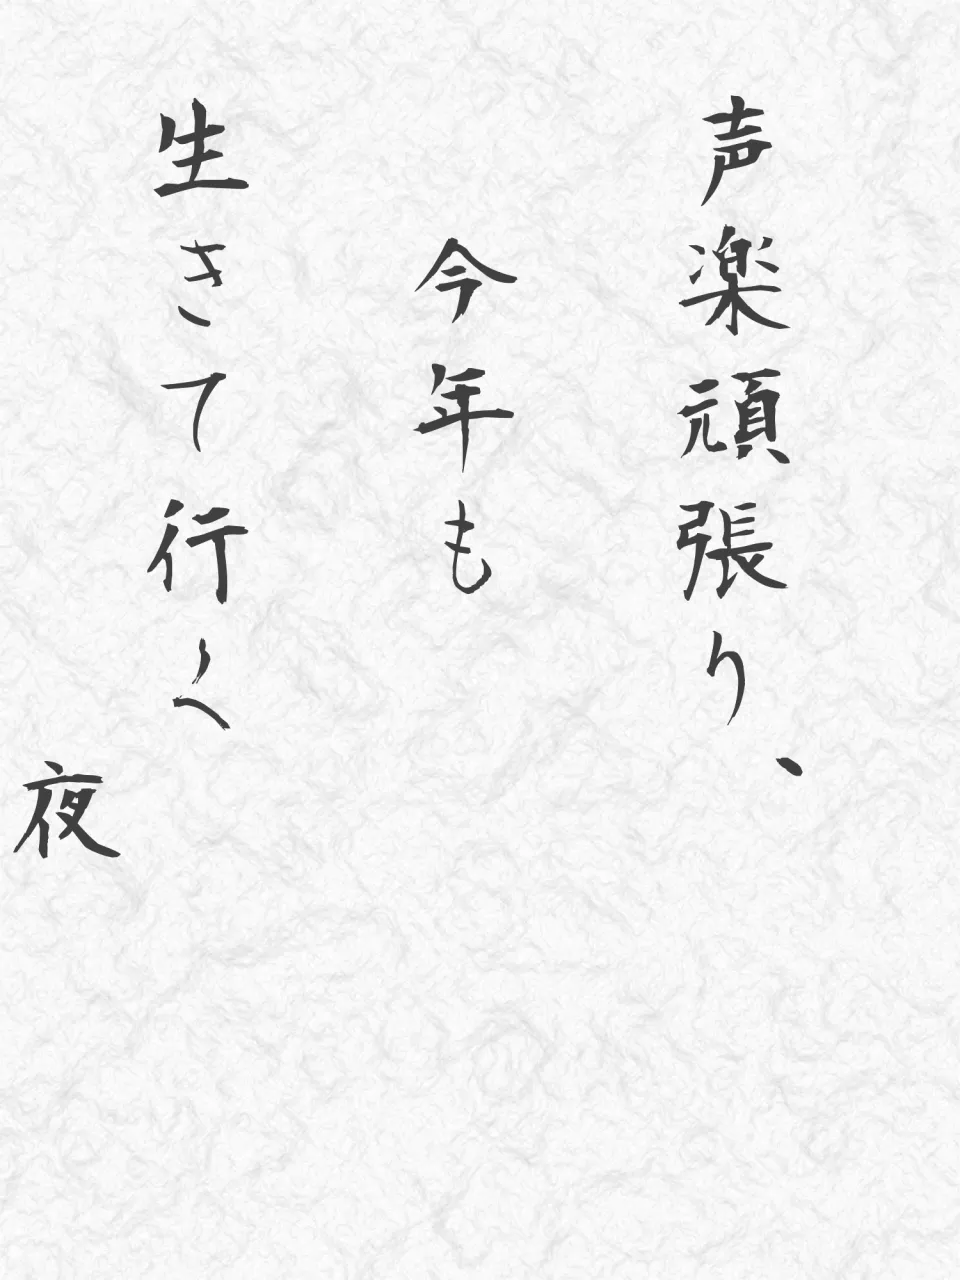 声楽頑張り、
今年も
生きて行く
夜